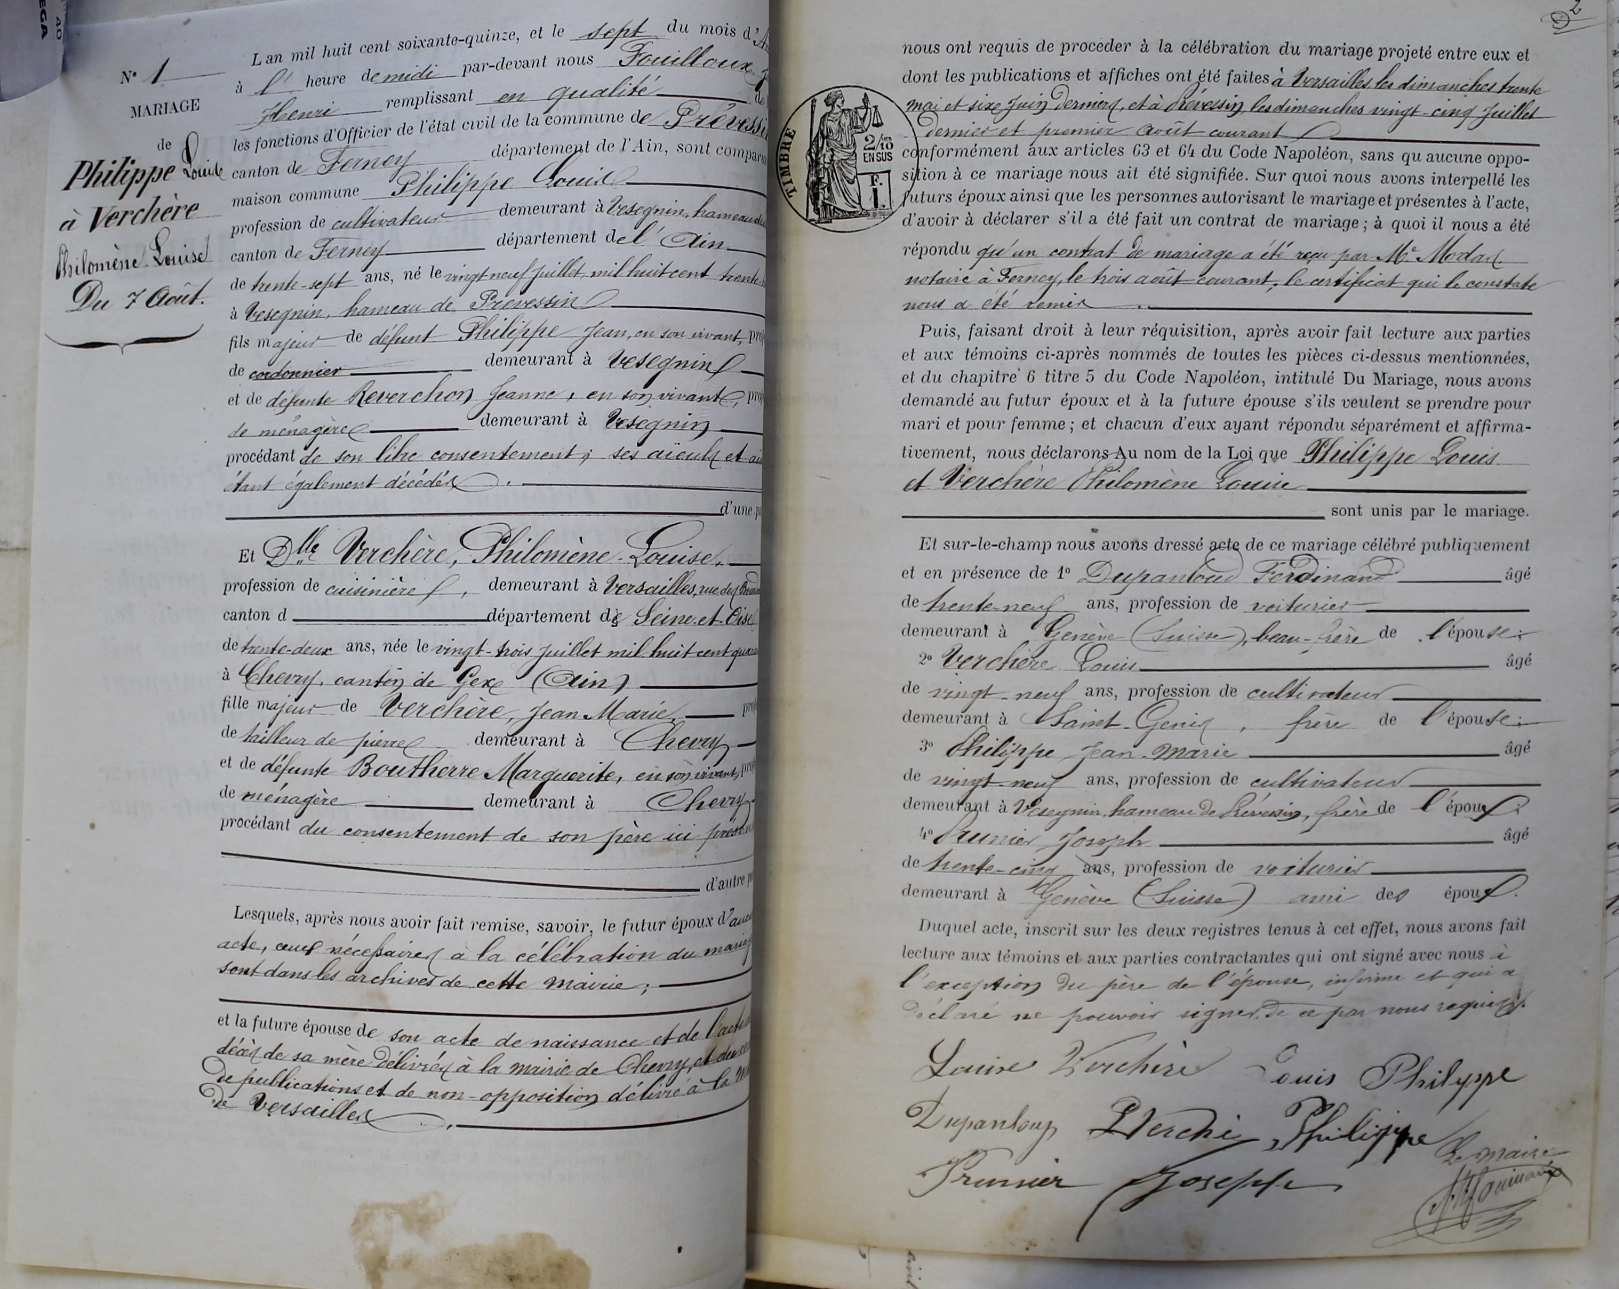 N° 1
MARIAGE
de
Philippe Louis
à Verchère
Philomène Louise
Du 7 Août.
L'an mil huit cent soixante-quinze, et le sept du mois d'A
à l' heure de midi par-devant nous Fouilloux
Henri remplissant en qualité de
les fonctions d'Officier de l'état civil de la commune de Prévessin
canton de Ferney département de l'Ain, sont comparu
maison commune Philippe Louis
profession de cultivateur demeurant à Vesegnin, hameau de
canton de Ferney département de l'Ain
de trente-sept ans, né le vingt neuf juillet mil huit cent trente
à Vesegnin, hameau de Prévessin
fils majeur de défunt Philippe Jean, en son vivant, pro
de cordonnier demeurant à Vesegnin
et de défunte Reverchon Jeanne, en son vivant, pro
de ménagère demeurant à Vesegnin
procédant de son libre consentement, ses aïeuls et
étant également décédés.
d'une p
Et Dlle Verchère, Philomène-Louise,
profession de cuisinière, demeurant à Versailles, rue des
canton d département de Seine-et-Oise
de trente-deux ans, née le vingt-trois juillet mil huit cent quara
à Chevry, canton de Gex (Ain)
fille majeur de Verchère, Jean Marie, pro
de tailleur de pierres demeurant à Chevry
et de défunte Boutherre Marguerite, en son vivant, pro
de ménagère demeurant à Chevry
procédant du consentement de son père ici présen
d'autre p
Lesquels, après nous avoir fait remise, savoir, le futur époux d'aucu
acte, ceux nécessaires à la célébration du maria
sont dans les archives de cette mairie;
et la future épouse de son acte de naissance et de l'acte
décès de sa mère délivrés à la mairie de Chevry, et du
de publications et de non-opposition délivré à la M
de Versailles.
2
nous ont requis de procéder à la célébration du mariage projeté entre eux et
dont les publications et affiches ont été faites à Versailles les dimanches trente
mai et six juin derniers, et à Prévessin les dimanches vingt-cinq juillet
dernier et premier août courant
TIMBRE
2/10
EN SUS
F.
1.
conformément aux articles 63 et 64 du Code Napoléon, sans qu'aucune oppo-
sition à ce mariage nous ait été signifiée. Sur quoi nous avons interpellé les
futurs époux ainsi que les personnes autorisant le mariage et présentes à l'acte,
d'avoir à déclarer s'il a été fait un contrat de mariage; à quoi il nous a été
répondu qu'un contrat de mariage a été reçu par Me Modas
notaire à Ferney, le trois août courant, le certificat qui le constate
nous a été remis.
Puis, faisant droit à leur réquisition, après avoir fait lecture aux parties
et aux témoins ci-après nommés de toutes les pièces ci-dessus mentionnées,
et du chapitre 6 titre 5 du Code Napoléon, intitulé Du Mariage, nous avons
demandé au futur époux et à la future épouse s'ils veulent se prendre pour
mari et pour femme; et chacun d'eux ayant répondu séparément et affirma-
tivement, nous déclarons Au nom de la Loi que Philippe Louis
et Verchère Philomène Louise
sont unis par le mariage.
Et sur-le-champ nous avons dressé acte de ce mariage célébré publiquement
et en présence de 1° Dupanloud Ferdinand âgé
de trente-neuf ans, profession de voiturier
demeurant à Genève (Suisse), beau-frère de l'épouse;
2° Verchère Louis âgé
de vingt-neuf ans, profession de cultivateur
demeurant à Saint-Genis, frère de l'épouse;
3° Philippe Jean-Marie âgé
de vingt-neuf ans, profession de cultivateur
demeurant à Vesegnin, hameau de Prévessin, frère de l'époux;
4° Prunier Joseph âgé
de trente-cinq ans, profession de voiturier
demeurant à Genève (Suisse) ami des époux.
Duquel acte, inscrit sur les deux registres tenus à cet effet, nous avons fait
lecture aux témoins et aux parties contractantes qui ont signé avec nous à
l'exception du père de l'épouse, infirme et qui a
déclaré ne pouvoir signer, de ce par nous requis.
Louise Verchère Louis Philippe
Dupanloup Verchè Philippe
Le maire
Prunier Joseph